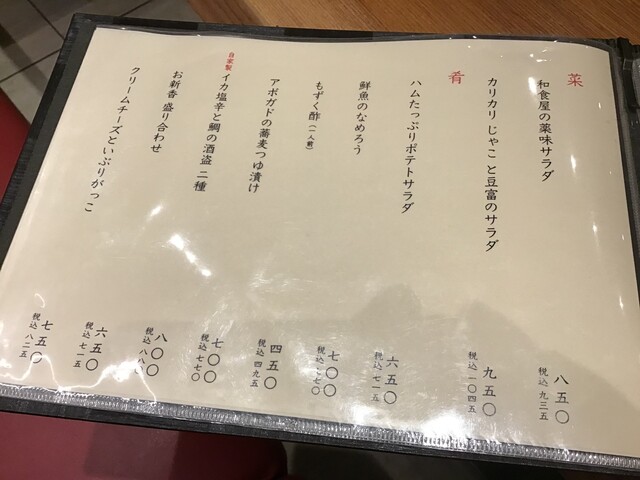 菜
和食屋の薬味サラダ
八五〇
税込 九三五
カリカリ じゃこ と豆富のサラダ
九五〇
税込 一〇四五
肴
ハムたっぷりポテトサラダ
六五〇
税込 七一五
鮮魚のなめろう
七〇〇
税込 七七〇
もずく酢(一人前)
四五〇
税込 四九五
アボガドの蕎麦つゆ漬け
七〇〇
税込 七七〇
自家製 イカ塩辛と鯛の酒盗 二種
八〇〇
税込 八八〇
お新香 盛り合わせ
六五〇
税込 七一五
クリームチーズといぶりがっこ
七五〇
税込 八二五